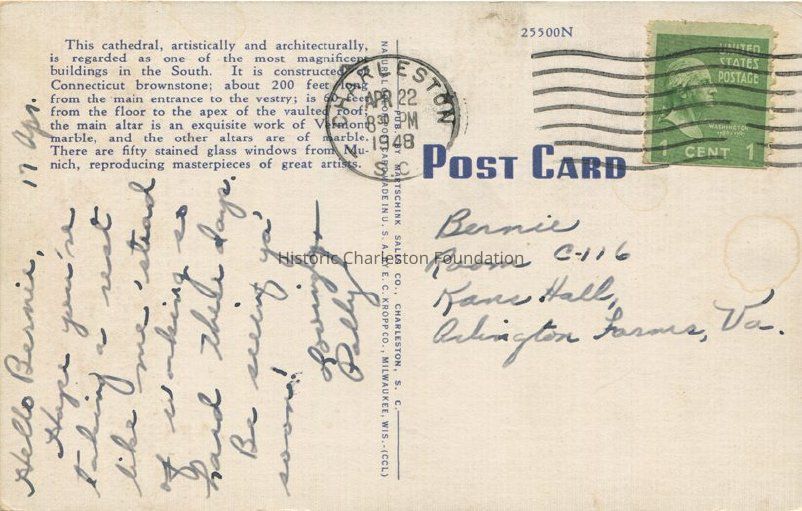 This cathedral, artistically and architecturally,
is regarded as one of the most magnificent
buildings in the South. It is constructed of
Connecticut brownstone; about 200 feet long
from the main entrance to the vestry; is feet
from the floor to the apex of the vaulted roof;
the main altar is an exquisite work of Vermont
marble, and the other altars are of marble.
There are fifty stained glass windows from Mu-
nich, reproducing masterpieces of great artists.
25500N
CHARLESTON
APR 22
8 30 PM
1948
S C
UNITED
STATES
POSTAGE
WASHINGTON
1 CENT 1
POST CARD
17 Apr.
Hello Bernie,
Hope you're
taking a rest
like me 'stead
of working so
hard these days.
Be seeing ya'
soon!
Lovingly—
PUB. BY MARTSCHINK SALES CO., CHARLESTON, S. C.
MADE IN U. S. A. BY E. C. KROPP CO., MILWAUKEE, WIS.-(CCL)
Bernie
Room C-116
Kans Hall,
Arlington Farms, Va.
Historic Charleston Foundation